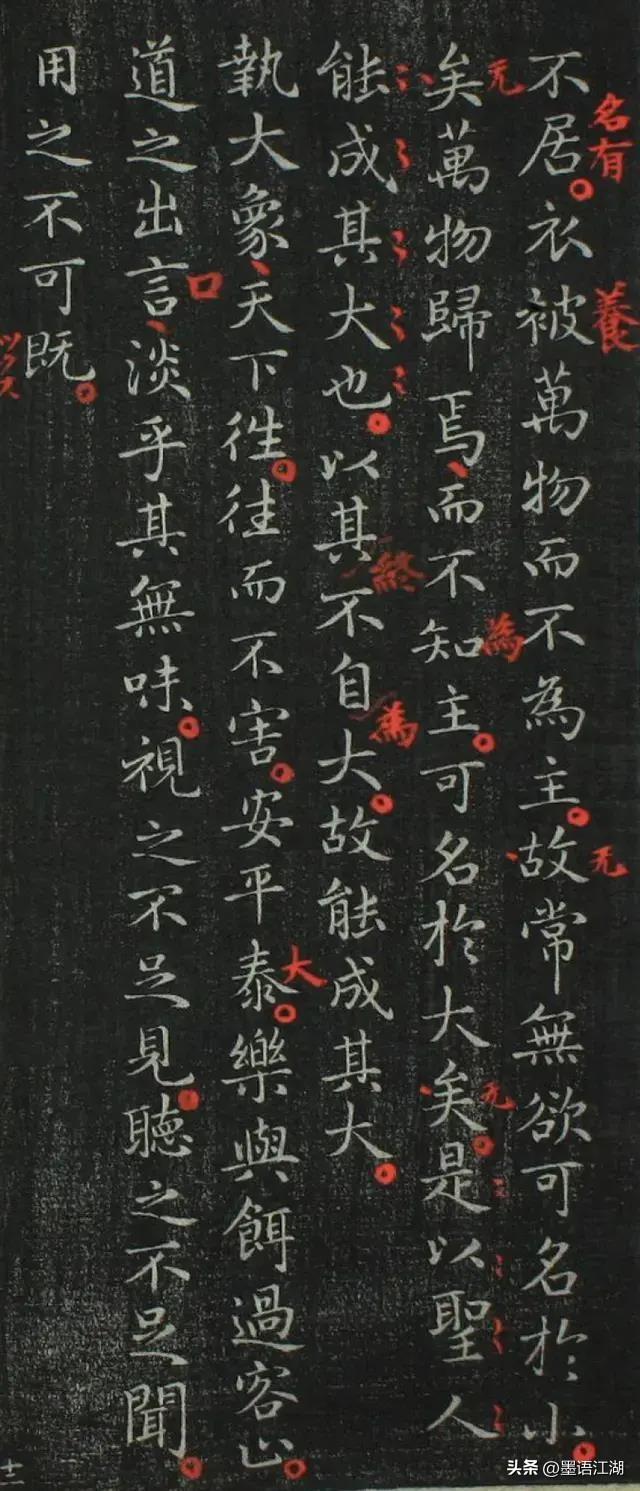 名有 養 无
不居。衣被萬物而不為主。故常無欲可名於小。
无 為 无
矣萬物歸焉、而不知主。可名於大矣。是以聖人
終 為
能成其大也。以其不自大。故能成其大。
大
執大象、天下往。往而不害。安平泰。樂與餌過客止。
口
道之出言、淡乎其無味。視之不足見。聽之不足聞。
用之不可既。
十二
头条 @墨语江湖